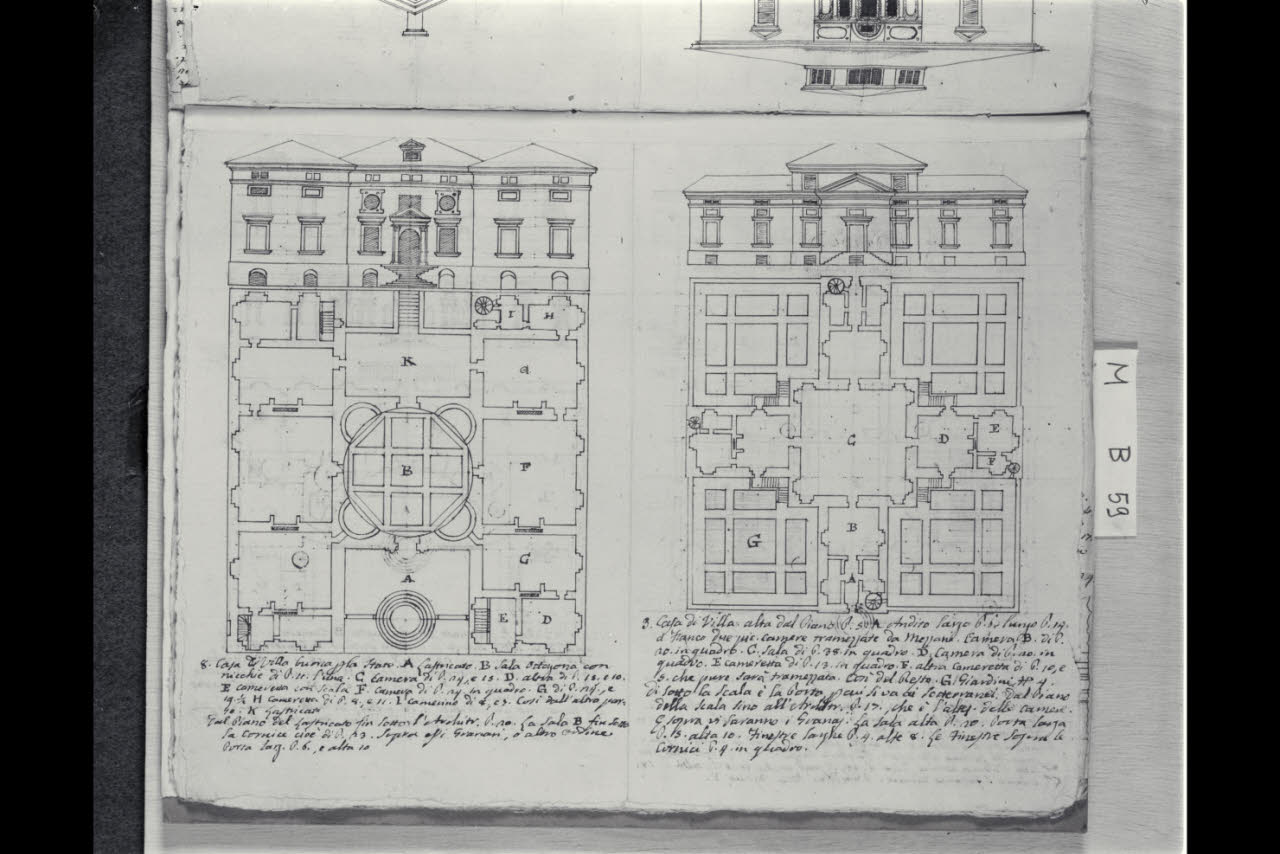 K
I
H
G
F
B
A
C
E
D
C
D
E
F
B
G
A
M B 59
8. Casa di Villa per la State. A Lastricato. B Sala Ottagona con
nicchie di P. 11. C Camera di P. 24, e 13. D altra di P. 12. e 10.
E cameretta con scala F. Camera di P. 24 in quadro. G di P. 24, e
H Cameretta di P. 8, e 11. I Camerino di Così dall'altra par-
te. K Lastricato
Dal Piano del Lastricato fin sotto l'Architr. P. 20. La Sala B fin sotto
la Cornice cioè di P. 23. Sopra essi Granari, o altro ordine
Porta larg. P. 6, e alta 10
Casa di Villa alta dal Piano P. 5. A Andito largo P. lungo P. 14.
a fianco due pic. camere tramezzate da Mezzani. Camera B. di P.
20. in quadro. C. Sala di P. 38. in quadro. D. Camera di P. 20. in
quadro. E cameretta di P. 12. in quadro. F. altra Cameretta di P. 10, e
15. che pure sarà tramezzata. Così del Resto. G. Giardini N° 4.
di sotto la scala è la porta, per cui si va ai sotterranei. Dal Piano
della scala sino all'Architr. P. 17. che è l'altez. delle camere.
E sopra vi saranno i Granaj. La sala alta P. 20. Porta larga
P. 5. alta 10. Finestre larghe P. 4. alte 8. Le Finestre sopra le
Cornici P. 4. in quadro.